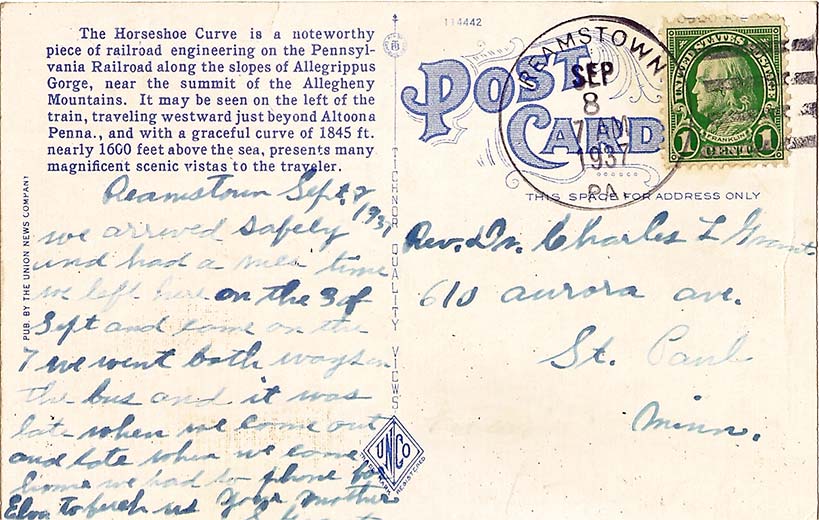 The Horseshoe Curve is a noteworthy
piece of railroad engineering on the Pennsyl-
vania Railroad along the slopes of Allegrippus
Gorge, near the summit of the Allegheny
Mountains. It may be seen on the left of the
train, traveling westward just beyond Altoona
Penna., and with a graceful curve of 1845 ft.
nearly 1600 feet above the sea, presents many
magnificent scenic vistas to the traveler.
PUB. BY THE UNION NEWS COMPANY
Reamstown Sept.
1937
we arrived safely
and had a nice time
we left here on the 3 of
Sept and come on the
7 we went both ways on
the bus and it was
late when we come out
and late when we come
home we had to phone for
to fetch us your mother
TICHNOR QUALITY VIEWS
UNCO
TRADE MARK
REGISTERED
114442
POST
CARD
REAMSTOWN
SEP
8
7 AM
1937
PA.
UNITED STATES POSTAGE
FRANKLIN
1 CENT 1
THIS SPACE FOR ADDRESS ONLY
Rev. Dr. Charles L Grant
610 aurora ave.
St. Paul
Minn.